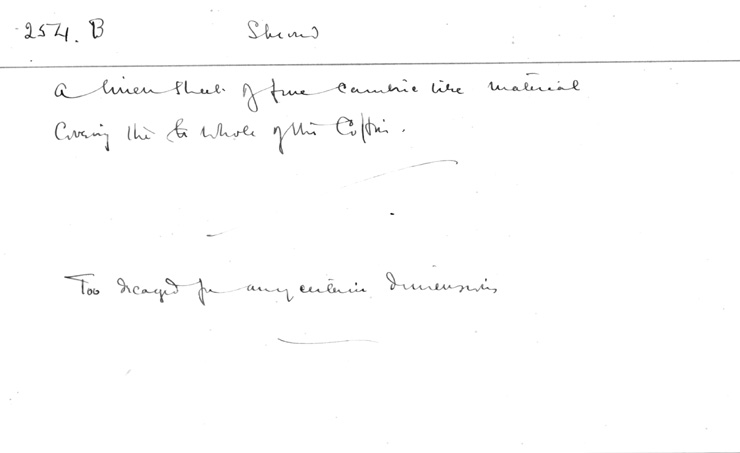 254. B Shroud
A linen sheet of fine cambric like material
Covering the to whole of the Coffin.
Too decayed for any certain dimensions